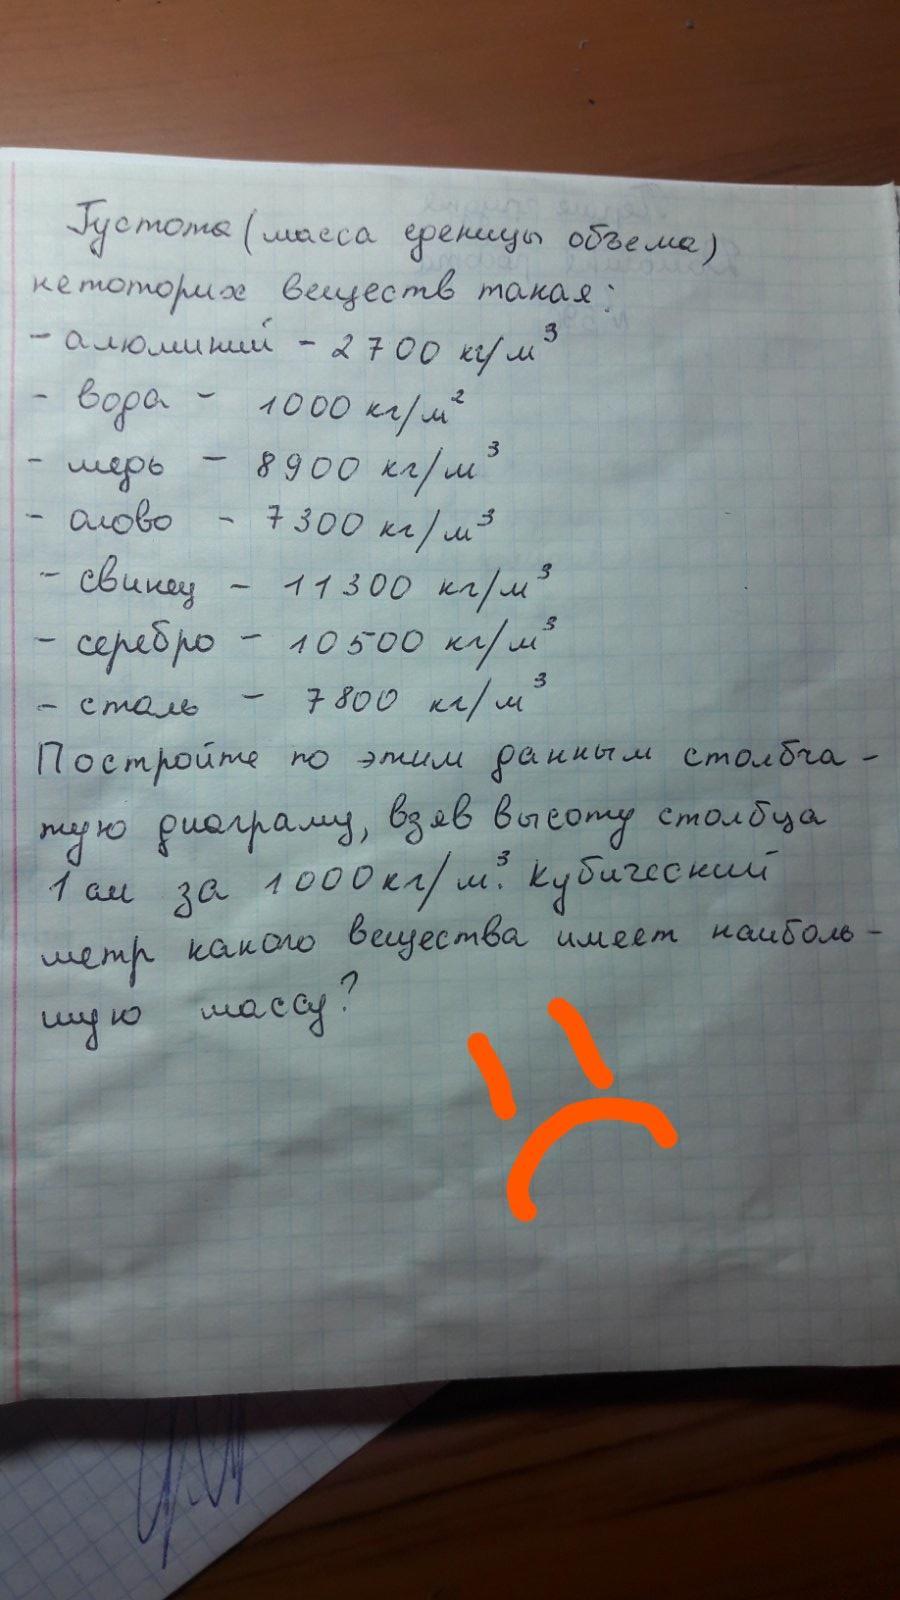 Густота (масса еденицы объема)
некоторих веществ такая:
- алюминий - 2700 кг/м³
- вода - 1000 кг/м²
- медь - 8900 кг/м³
- олово - 7300 кг/м³
- свинец - 11300 кг/м³
- серебро - 10500 кг/м³
- сталь - 7800 кг/м³
Постройте по этим данным столбча-
тую диаграму, взяв высоту столбца
1 см за 1000 кг/м³. Кубический
метр какого вещества имеет наиболь-
шую массу?